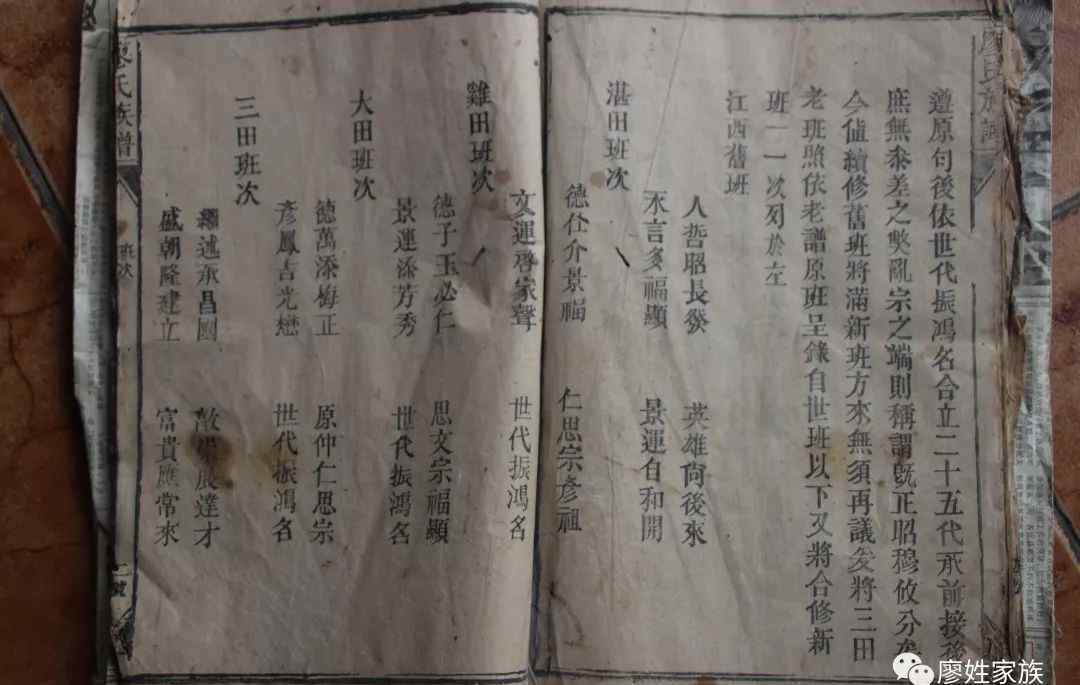 遵原句後依世代振鴻名合立二十五代承前接後
庶無參差之獘亂宗之端則稱謂既正昭穆攸分
今值續修舊班將滿新班方來無須再議爰將三田
老班照依老譜原班呈錄自世班以下又將合修新
班一一次列於左
江西舊班
人哲昭長發 英雄尚後來
永言多福顯 景運自和開
湛田班次
德仕介景福 仁思宗彥祖
文運啓家聲 世代振鴻名
雞田班次
德子玉必仁 思文宗福顯
景運添芳秀 世代振鴻名
大田班次
德萬添梅正 原仲仁思宗
彥鳳吉光懋 世代振鴻名
三田班次
述承昌國 達才
盛朝隆建立 富貴應常來
廖氏族譜
班次
廖氏族譜
廖姓家族